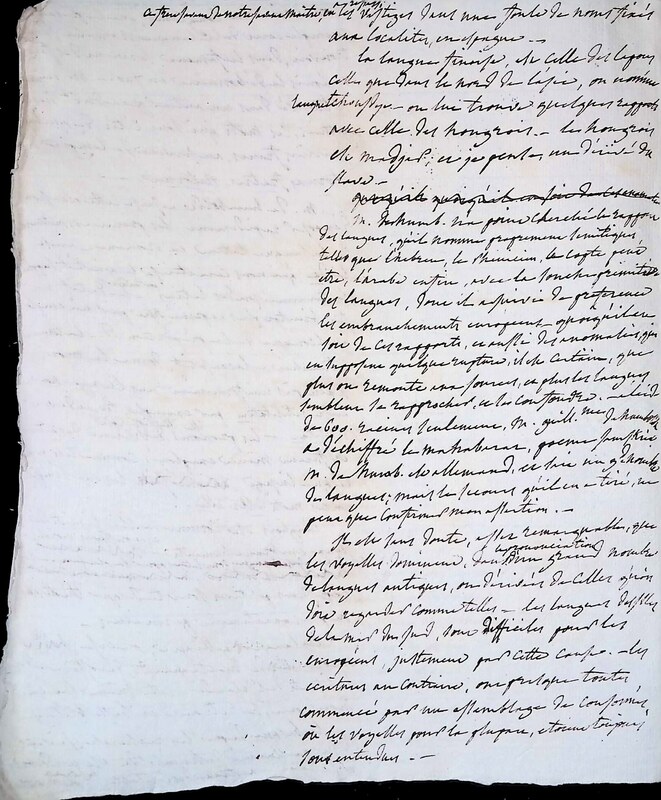 en les vestiges dans une foule de noms fixés
aux localités, en espagne. —
la langue finoise, est celle des lapons
celle que dans le nord de l'asie, on nomme
langue — on lui trouve quelques rapports
avec celle des hongrois. — les hongrois
et madjars; ce je pense, un dérivé du
slave —
M. de humb. n'a point cherché le rapport
des langues, qu'il nomme proprement sémitiques
telles que l'hébreu, le phénicien, le copte peut
etre, l'arabe enfin, avec la souche première
des langues, dont il a suivi de préférence
les embranchements européens — quoiqu'il en
soit de ces rapports, et aussi des anomalies, qui
en supposent quelque rupture, il est certain, que
plus on remonte aux sources, et plus les langues
semblent se rapprocher, et se confondre. — a l'aide
de 600. racines seulement, M. guill. me de humboldt
a déchiffré le mahabarat, poeme sanskrit
M. de humb. est allemand, et sait un g.d nombre
de langues; mais le secours qu'il en a tiré, ne
peut que confirmer mon assertion. —
Il est sans doute, assez remarquable, que
les voyelles dominent, dans la prononciation d'un grand nombre
de langues antiques, ou dérivées de celles qu'on
doit regarder comme telles — les langues des isles
de la mer du sud, sont difficiles pour les
européens, justement par cette cause. — les
écritures au contraire, ont presque toutes
commencé par un assemblage de consonnes
où les voyelles pour la plupart, etoient toujours
sous entendues. —